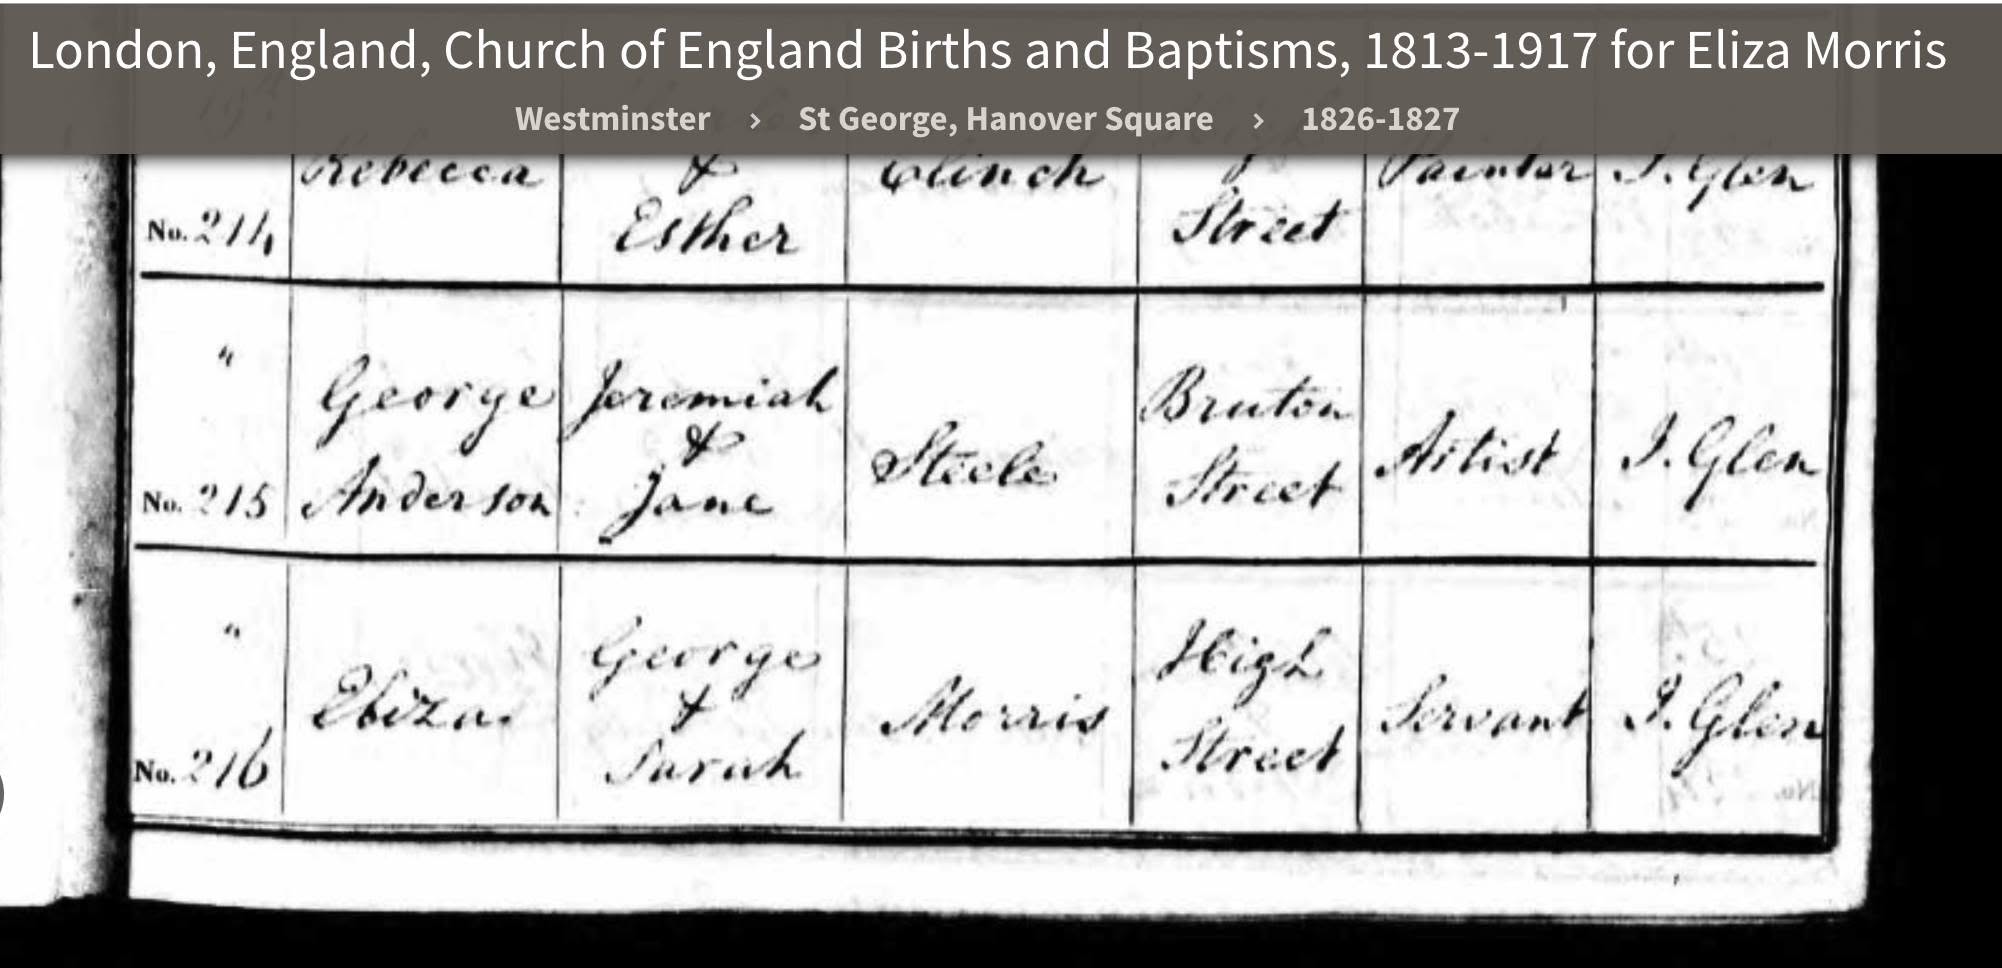 London, England, Church of England Births and Baptisms, 1813-1917 for Eliza Morris
Westminster > St George, Hanover Square > 1826-1827
No. 214
Rebecca
&
Esther
Clinch
Street
Painter
J. Glen
"
No. 215
George
Anderson
Jeremiah
&
Jane
Steele
Bruton
Street
Artist
J. Glen
"
No. 216
Eliza
George
&
Sarah
Morris
High
Street
Servant
J. Glen